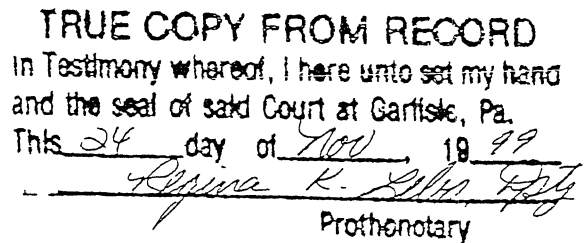 TRUE COPY FROM RECORD
In Testimony whereof, I here unto set my hand
and the seal of said Court at Carlisle, Pa.
This 24 day of Nov, 19 99
Regina K. Dpty
Prothonotary